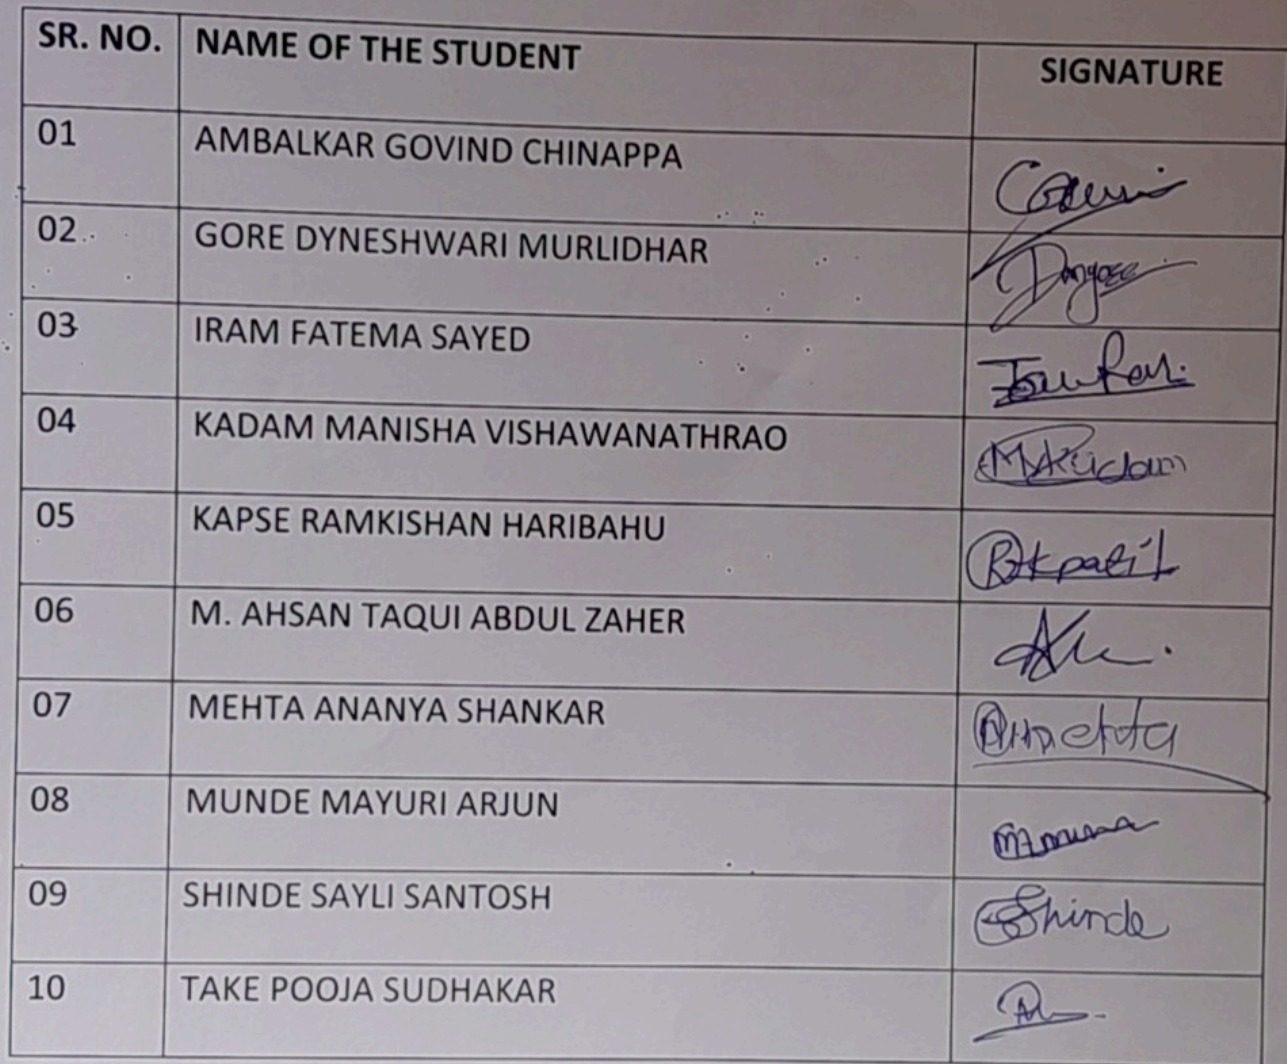 SR. NO. NAME OF THE STUDENT SIGNATURE
01 AMBALKAR GOVIND CHINAPPA
02 GORE DYNESHWARI MURLIDHAR
03 IRAM FATEMA SAYED
04 KADAM MANISHA VISHAWANATHRAO
05 KAPSE RAMKISHAN HARIBAHU
06 M. AHSAN TAQUI ABDUL ZAHER
07 MEHTA ANANYA SHANKAR
08 MUNDE MAYURI ARJUN
09 SHINDE SAYLI SANTOSH Shinde
10 TAKE POOJA SUDHAKAR